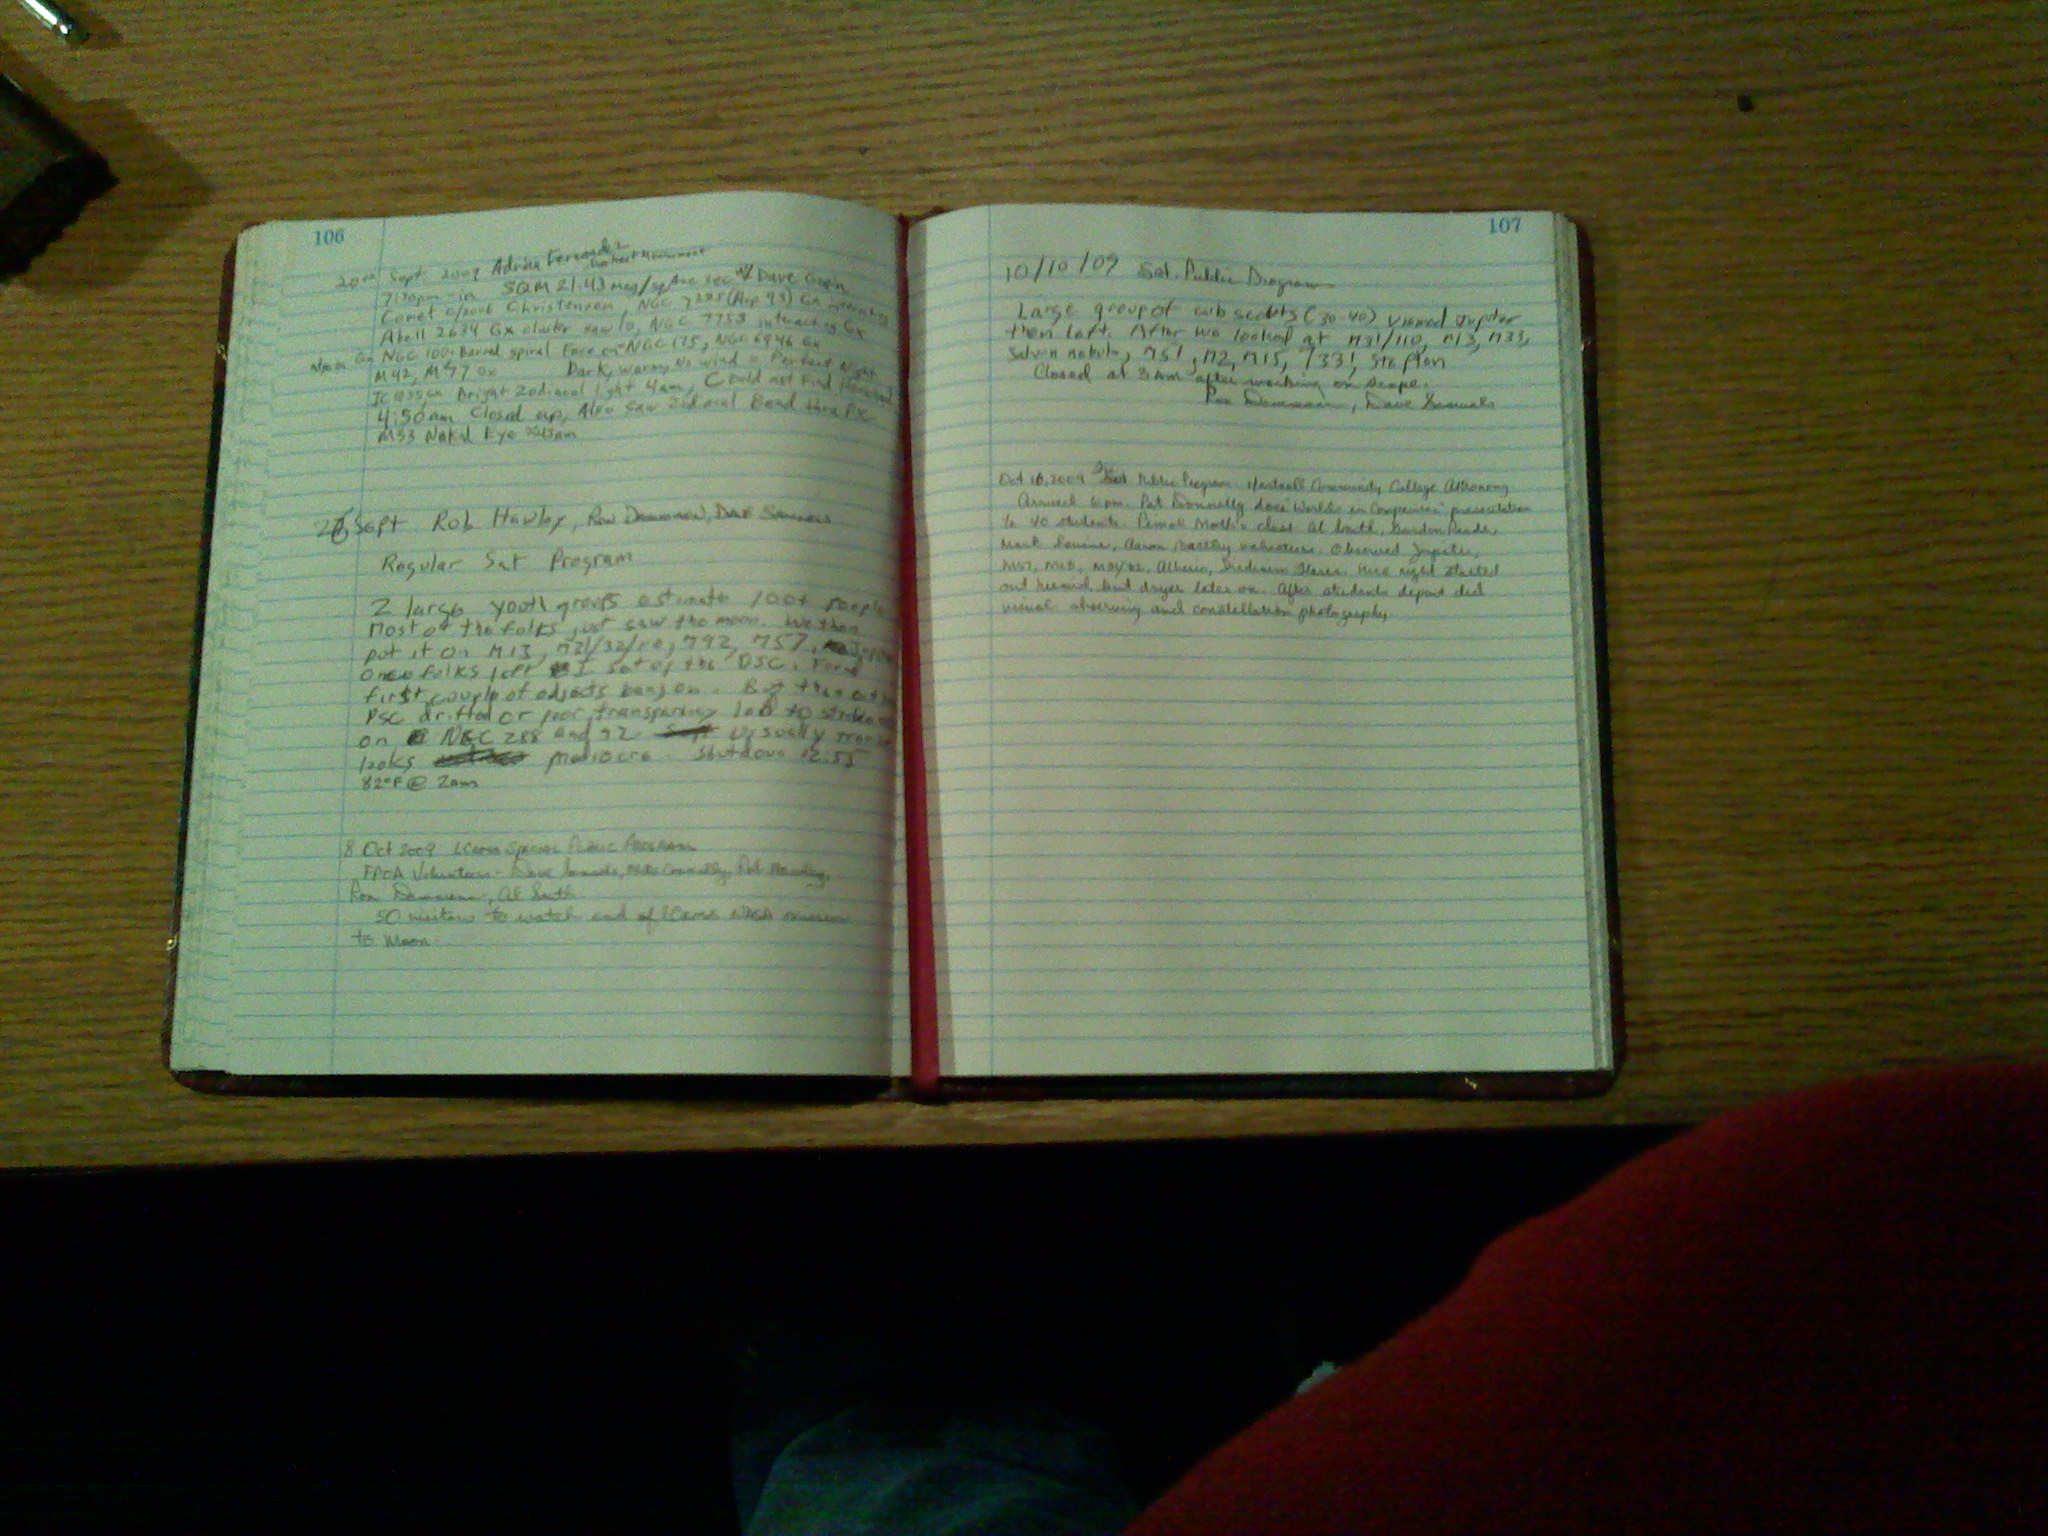 106
20th Sept. 2009 Adrian Fernandez
7:30pm - in SQM 21.43 mag/sq Arc sec w/ Dave
Comet C/2006 Christensen NGC (Arp 93) Gx interacting
Abell 2634 Gx cluster saw 10, NGC 7753 interacting Gx
NGC 100 Barred spiral Face on NGC 175, NGC 6946 Gx
M42, M77 Gx Dark, warm, No wind = Perfect Night
Bright Zodiacal light 4am, Could not find
4:50am Closed up, Also saw Zodiacal Band thru
M33 Naked Eye
26 Sept Rob Hawley, Ron Dammann, Dave Samuels
Regular Sat Program
2 large youth groups estimate 100+ people
Most of the folks just saw the moon. We then
put it on M13, M31/32/110, M92, M57,
Once folks left I set up the DSC. Found
first couple of objects bang on. But then either
DSC drifted or poor transparency led to
on NGC 288 and Visually
looks mediocre. Shutdown 12:55
82°F @ 2am
8 Oct 2009 LCROSS Special Public Program
FPOA Volunteers - Dave Samuels, Connelly, Pat
Ron Dammann, Al Smith
50 visitors to watch end of LCROSS NASA mission
to Moon.
107
10/10/09 Sat. Public Program
Large group of cub scouts (30-40) viewed Jupiter
then left. After we looked at M31/110, M13, M33,
Saturn nebula, M51, M2, M15, 7331, Stephan
Closed at 3AM after working on scope.
Ron Dammann, Dave Samuels
Oct 16, 2009 Public Program Hartnell Community College Astronomy
Arrived 6pm. Pat Donnelly does "Worlds in Comparison" presentation
to 40 students. class. Al Smith,
Mark Aaron volunteers. Observed Jupiter,
M57, M15, Albireo, Iridium Flares. Nice night started
out humid but dryer later on. After students depart did
visual observing and constellation photography.